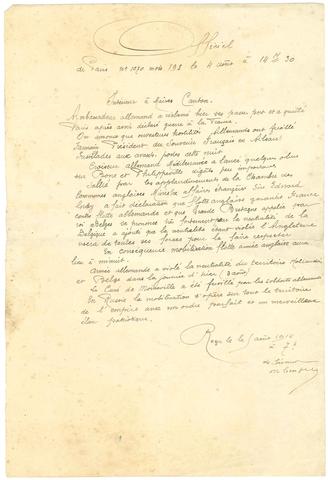 Officiel
de Paris nº 1070 mots 193 le 4 août à 14 h 30
Intérieur à Maires Canton.
Ambassadeur allemand a réclamé hier ses passeport et a quitté
Paris après avoir déclaré guerre à la France
On annonce que ouvertures hostilités Allemands ont fusillé
Samain Président du Souvenir Français en Alsace
Fusillades aux avants postes cette nuit
Croiseur allemand Méditerranée a lancé quelques obus
sur Bone et Philippeville dégâts peu importants
Salué par les applaudissements de la Chambre des
Communes anglaises Ministre affaires étrangères Sir Edward
Grey a fait déclaration que flotte anglaise garantit France
contre flotte allemande et que Grande Bretagne appelée par
roi Belges se prononce très fortement sur la neutralité de la
Belgique a ajouté que la neutralité étant violée l'Angleterre
usera de toutes ses forces pour la faire respecter
En conséquence mobilisation flotte armée anglaise aura
lieu à minuit.
Armée allemande a violé la neutralité du territoire Hollandais
et Belge dans la journée d'hier (3 août)
Le Curé de Moineville a été fusillé par les soldats allemands
En Russie la mobilisation s'opère sur tout le territoire
de l'empire avec un ordre parfait et un merveilleux
élan patriotique.
Reçu le 5 août 1914
à 7 h